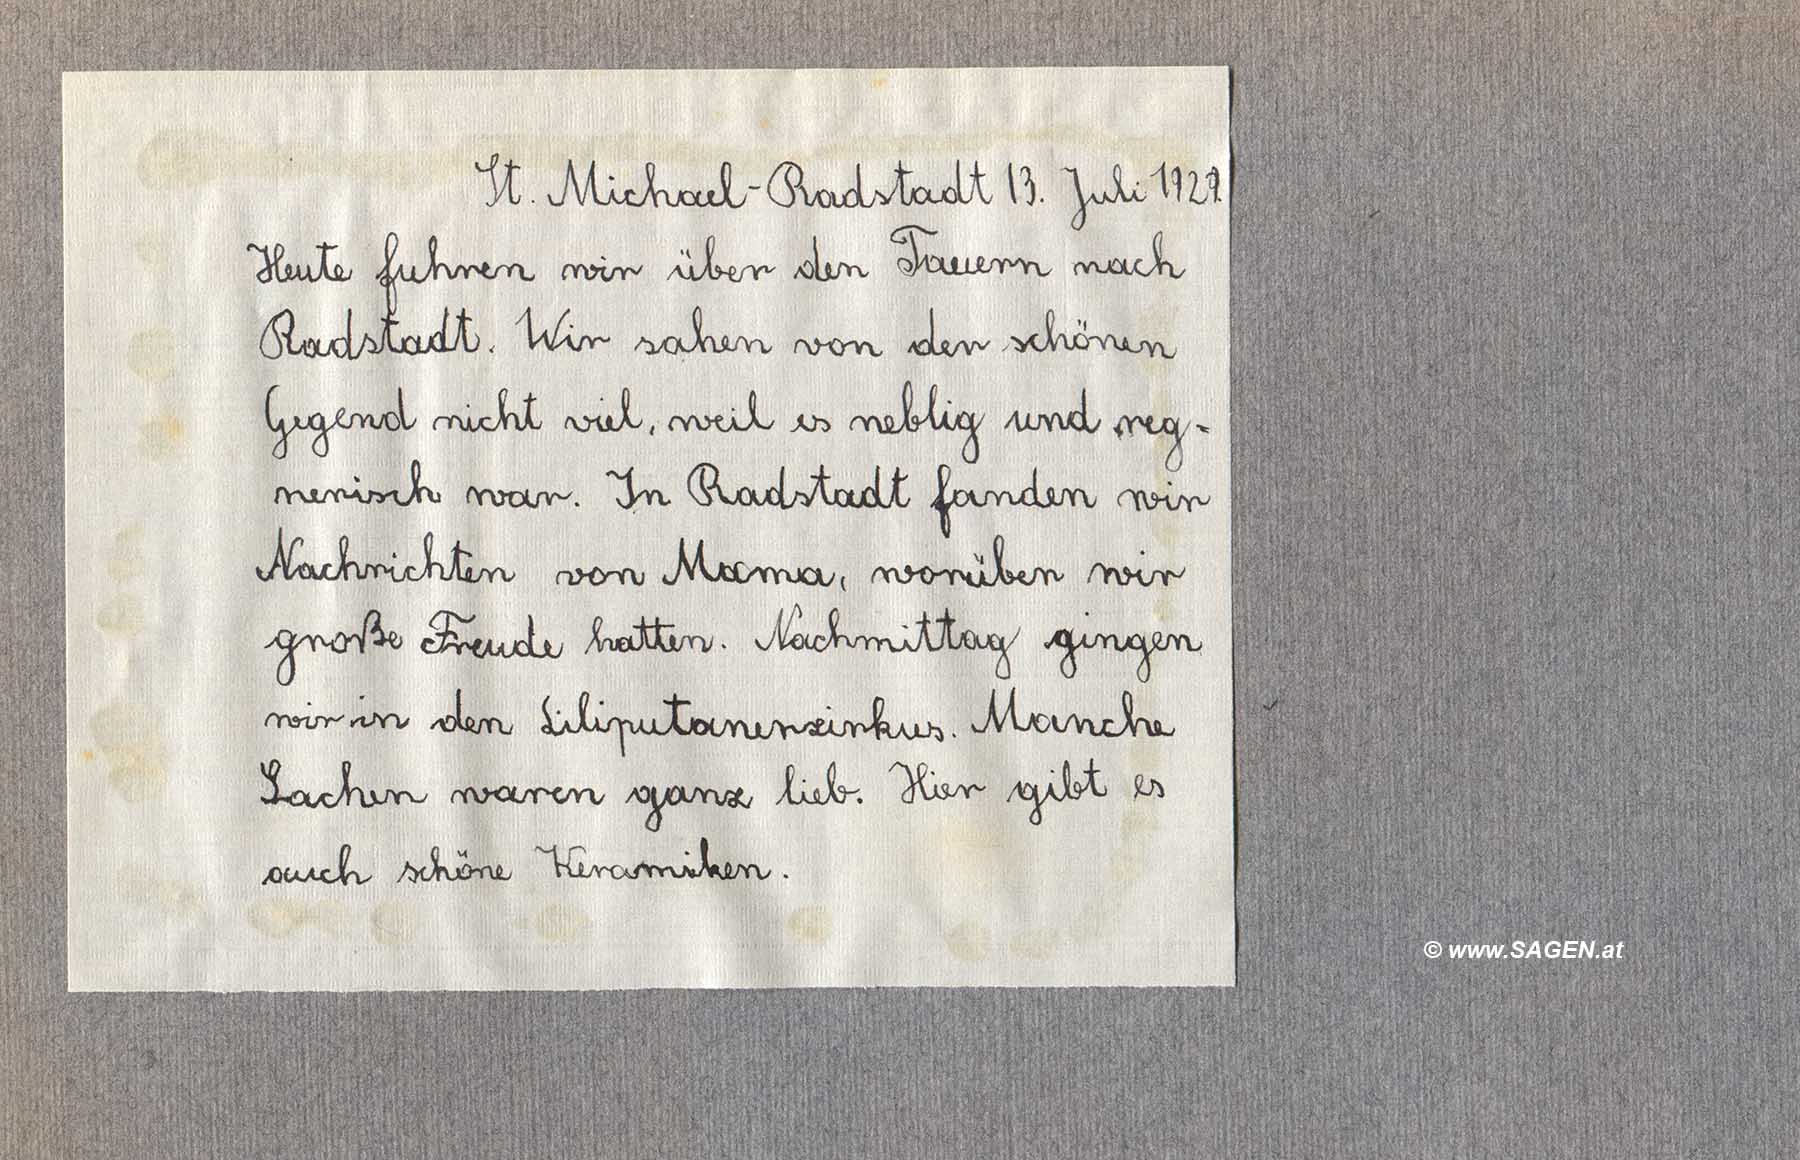 St. Michael-Radstadt 13. Juli 1929.
Heute fuhren wir über den Tauern nach
Radstadt. Wir sahen von der schönen
Gegend nicht viel, weil es neblig und reg-
nerisch war. In Radstadt fanden wir
Nachrichten von Mama, worüber wir
große Freude hatten. Nachmittag gingen
wir in den Liliputanerzirkus. Manche
Sachen waren ganz lieb. Hier gibt es
auch schöne Keramiken.
© www.SAGEN.at